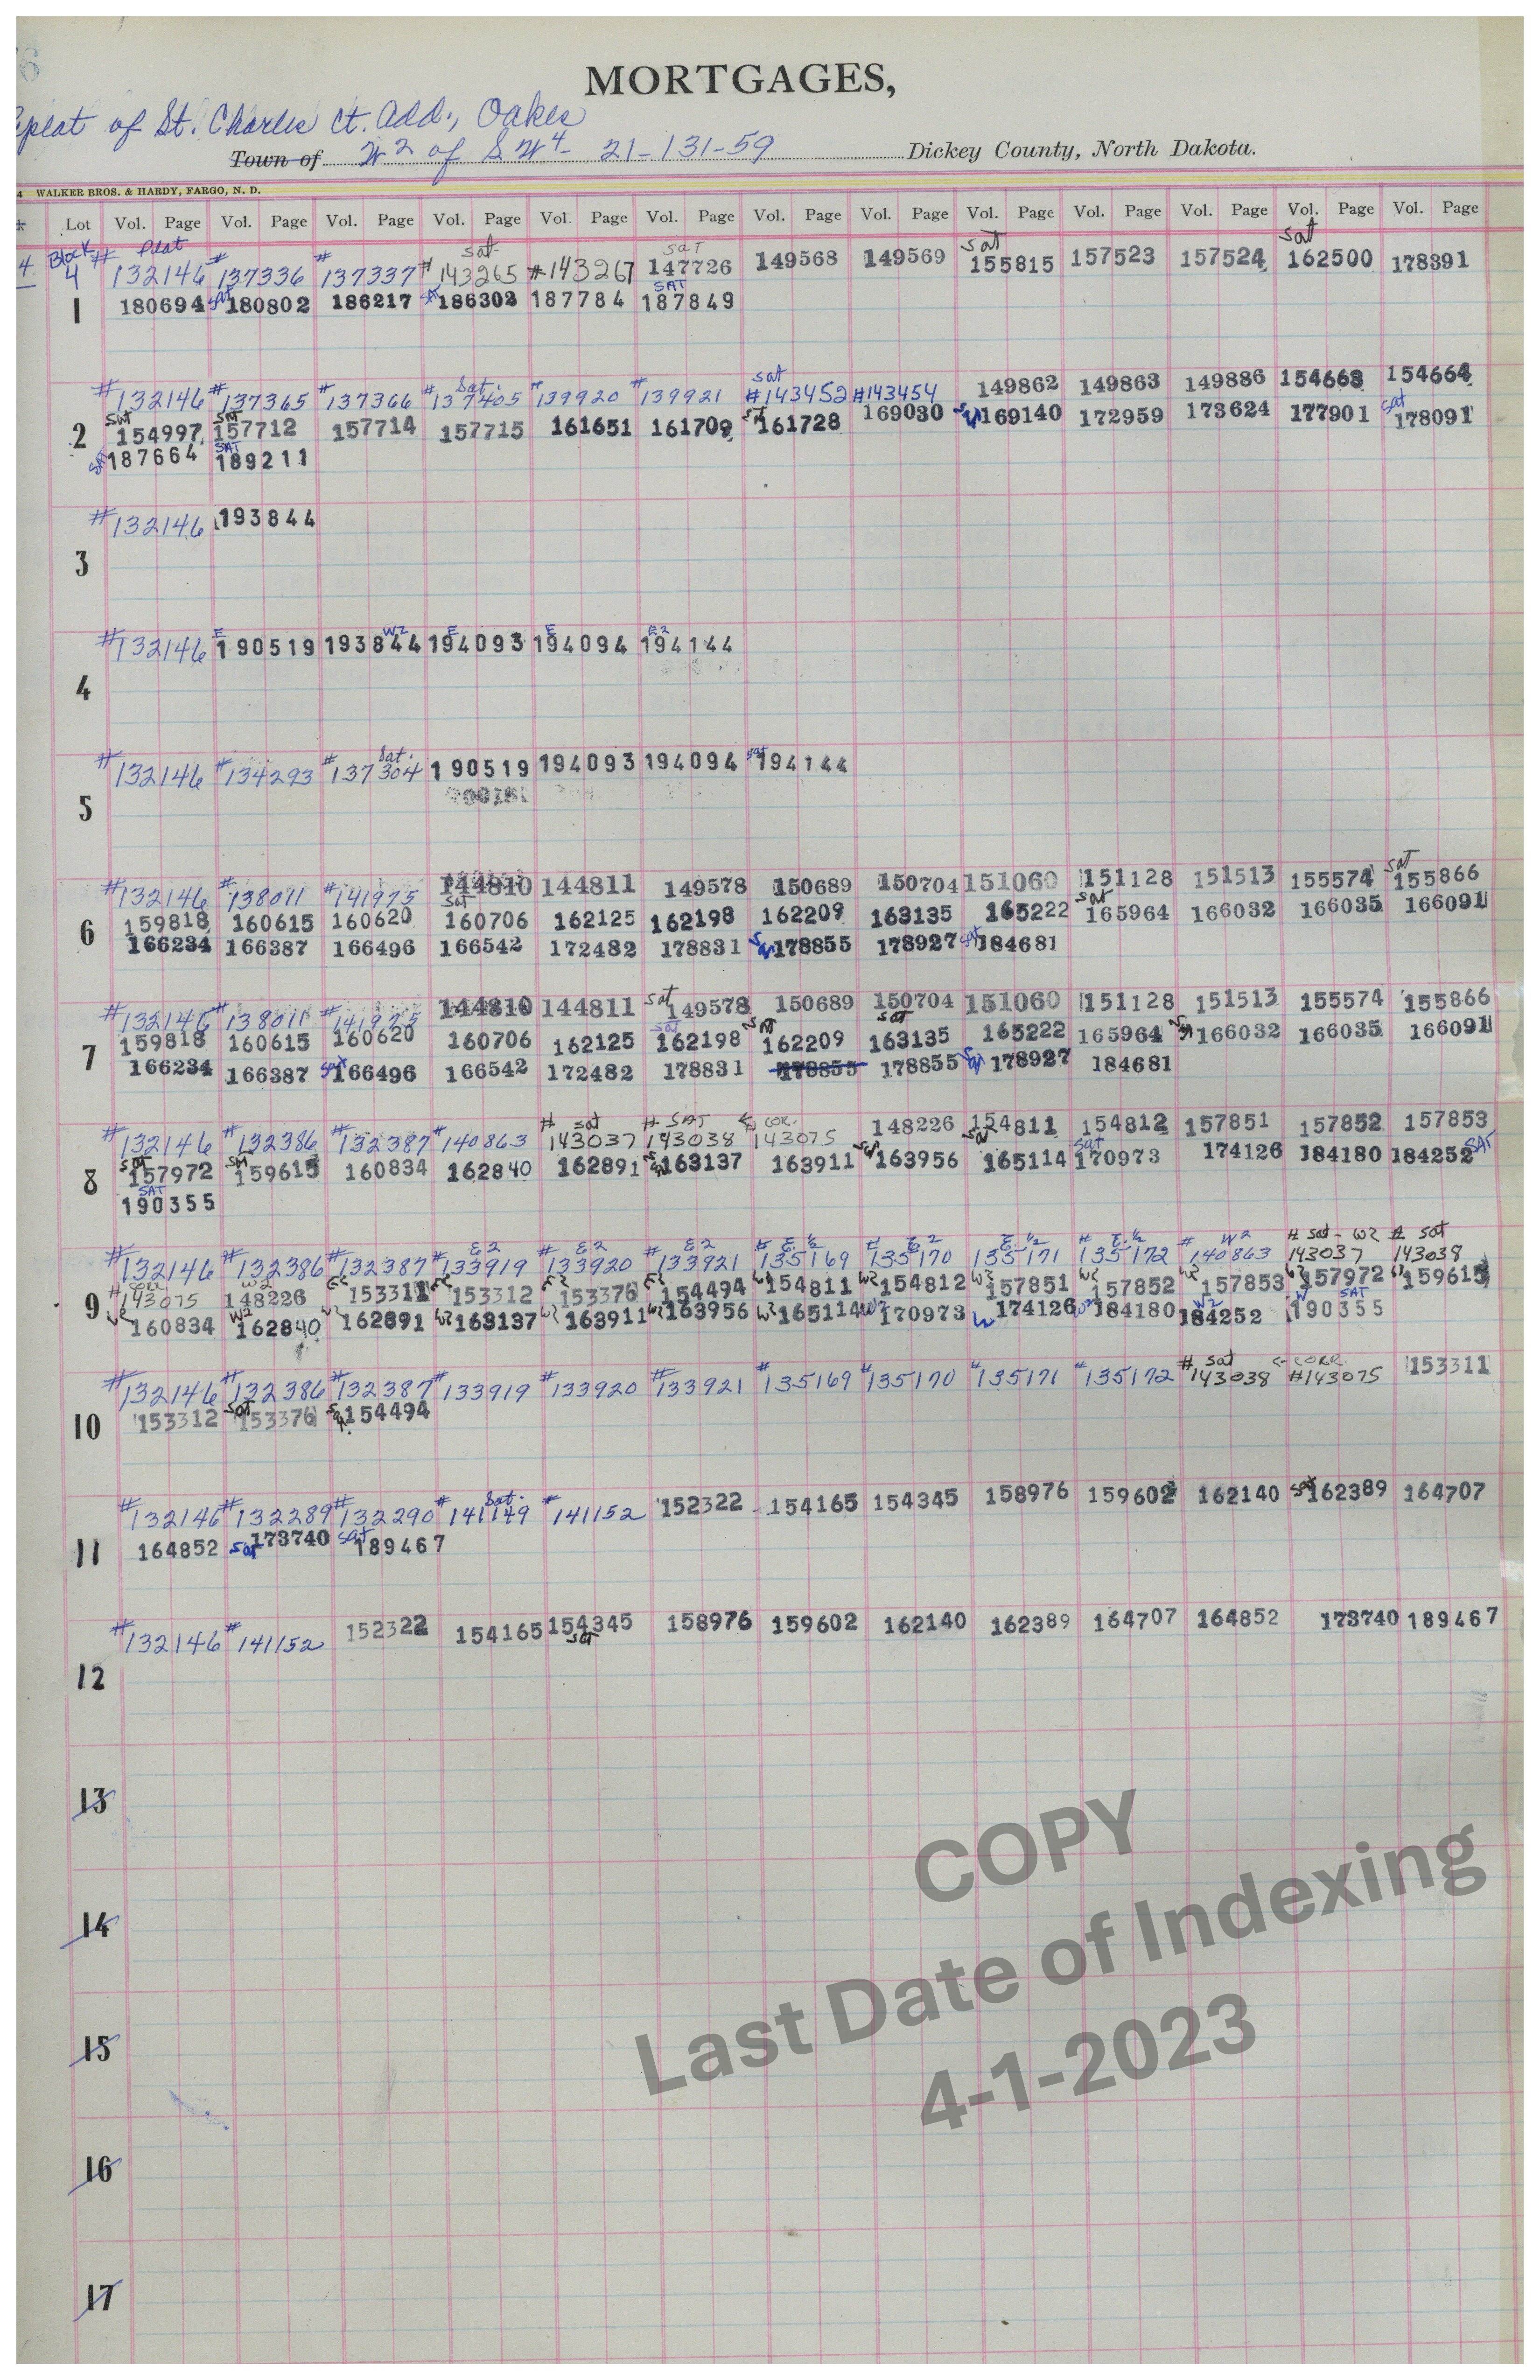 MORTGAGES,
of St. Charles Ct. Add., Oakes
Town of W2 of SW4 - 21-131-59 Dickey County, North Dakota.
4 WALKER BROS. & HARDY, FARGO, N. D.
Lot Vol. Page Vol. Page Vol. Page Vol. Page Vol. Page Vol. Page Vol. Page Vol. Page Vol. Page Vol. Page Vol. Page Vol. Page Vol. Page
Plat sat sat sat sat
4 Block 4 # 132146 # 137336 # 137337 # 143265 #143267 147726 149568 149569 155815 157523 157524 162500 178391
1 180694 sat 180802 186217 sat 186302 187784 SAT 187849
Sat. sat
#132146 #137365 #137366 #137405 #139920 #139921 #143452 #143454 149862 149863 149886 154663 154664
2 sat 154997 sat 157712 157714 157715 161651 161709 sat 161728 169030 sat 169140 172959 173624 177901 sat 178091
SAT 187664 SAT 189211
#132146 193844
3
E W2 E E E2
#132146 190519 193844 194093 194094 194144
4
Sat. sat
#132146 #134293 #137304 190519 194093 194094 194144
5
#132146 #138011 #141975 144810 144811 149578 150689 150704 151060 151128 151513 155574 sat 155866
6 159818 160615 160620 sat 160706 162125 162198 162209 163135 165222 sat 165964 166032 166035 166091
166234 166387 166496 166542 172482 178831 sat 178855 178927 sat 184681
#132146 #138011 #141975 144810 144811 sat 149578 150689 150704 151060 151128 151513 155574 155866
7 159818 160615 160620 160706 162125 sat 162198 sat 162209 sat 163135 165222 165964 sat 166032 166035 166091
166234 166387 sat 166496 166542 172482 178831 178855 178855 sat 178927 184681
# sat # SAT < COR.
#132146 #132386 #132387 #140863 143037 143038 143075 148226 154811 154812 157851 157852 157853
8 sat 157972 sat 159615 160834 162840 162891 sat 163137 163911 sat 163956 sat 165114 sat 170973 174126 184180 184252 SAT
SAT 190355
E2 E2 E2 E. ½ E. 2 E. ½ E. ½ W2 # sat - W2 # sat
#132146 #132386 #132387 #133919 #133920 #133921 #135169 #135170 135171 #135172 #140863 143037 143038
9 # corr 143075 W2 148226 E2 153311 E2 153312 E2 153376 E2 154494 W2 154811 W2 154812 W2 157851 W2 157852 W2 157853 W2 157972 W2 159615
W2 160834 W2 162840 W2 162891 W2 163137 W2 163911 W2 163956 W2 165114 W2 170973 W 174126 W2 184180 W2 184252 W SAT 190355
# sat <-CORR.
#132146 #132386 #132387 #133919 #133920 #133921 #135169 #135170 #135171 #135172 143038 #143075 153311
10 153312 sat 153376 sat 154494
Sat.
#132146 #132289 #132290 #141149 #141152 152322 154165 154345 158976 159602 162140 sat 162389 164707
11 164852 sat 173740 sat 189467
#132146 #141152 152322 154165 154345 158976 159602 162140 162389 164707 164852 173740 189467
sat
12
13
14
15
16
17
COPY
Last Date of Indexing
4-1-2023